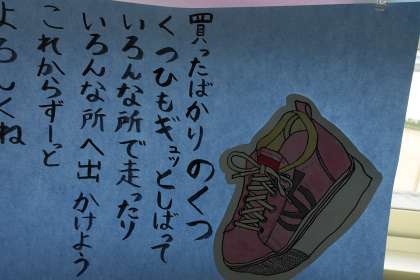 買ったばかりのくつ
くつひもギュッとしばって
いろんな所で走ったり
いろんな所へ出かけよう
これからずーっと
よろしくね